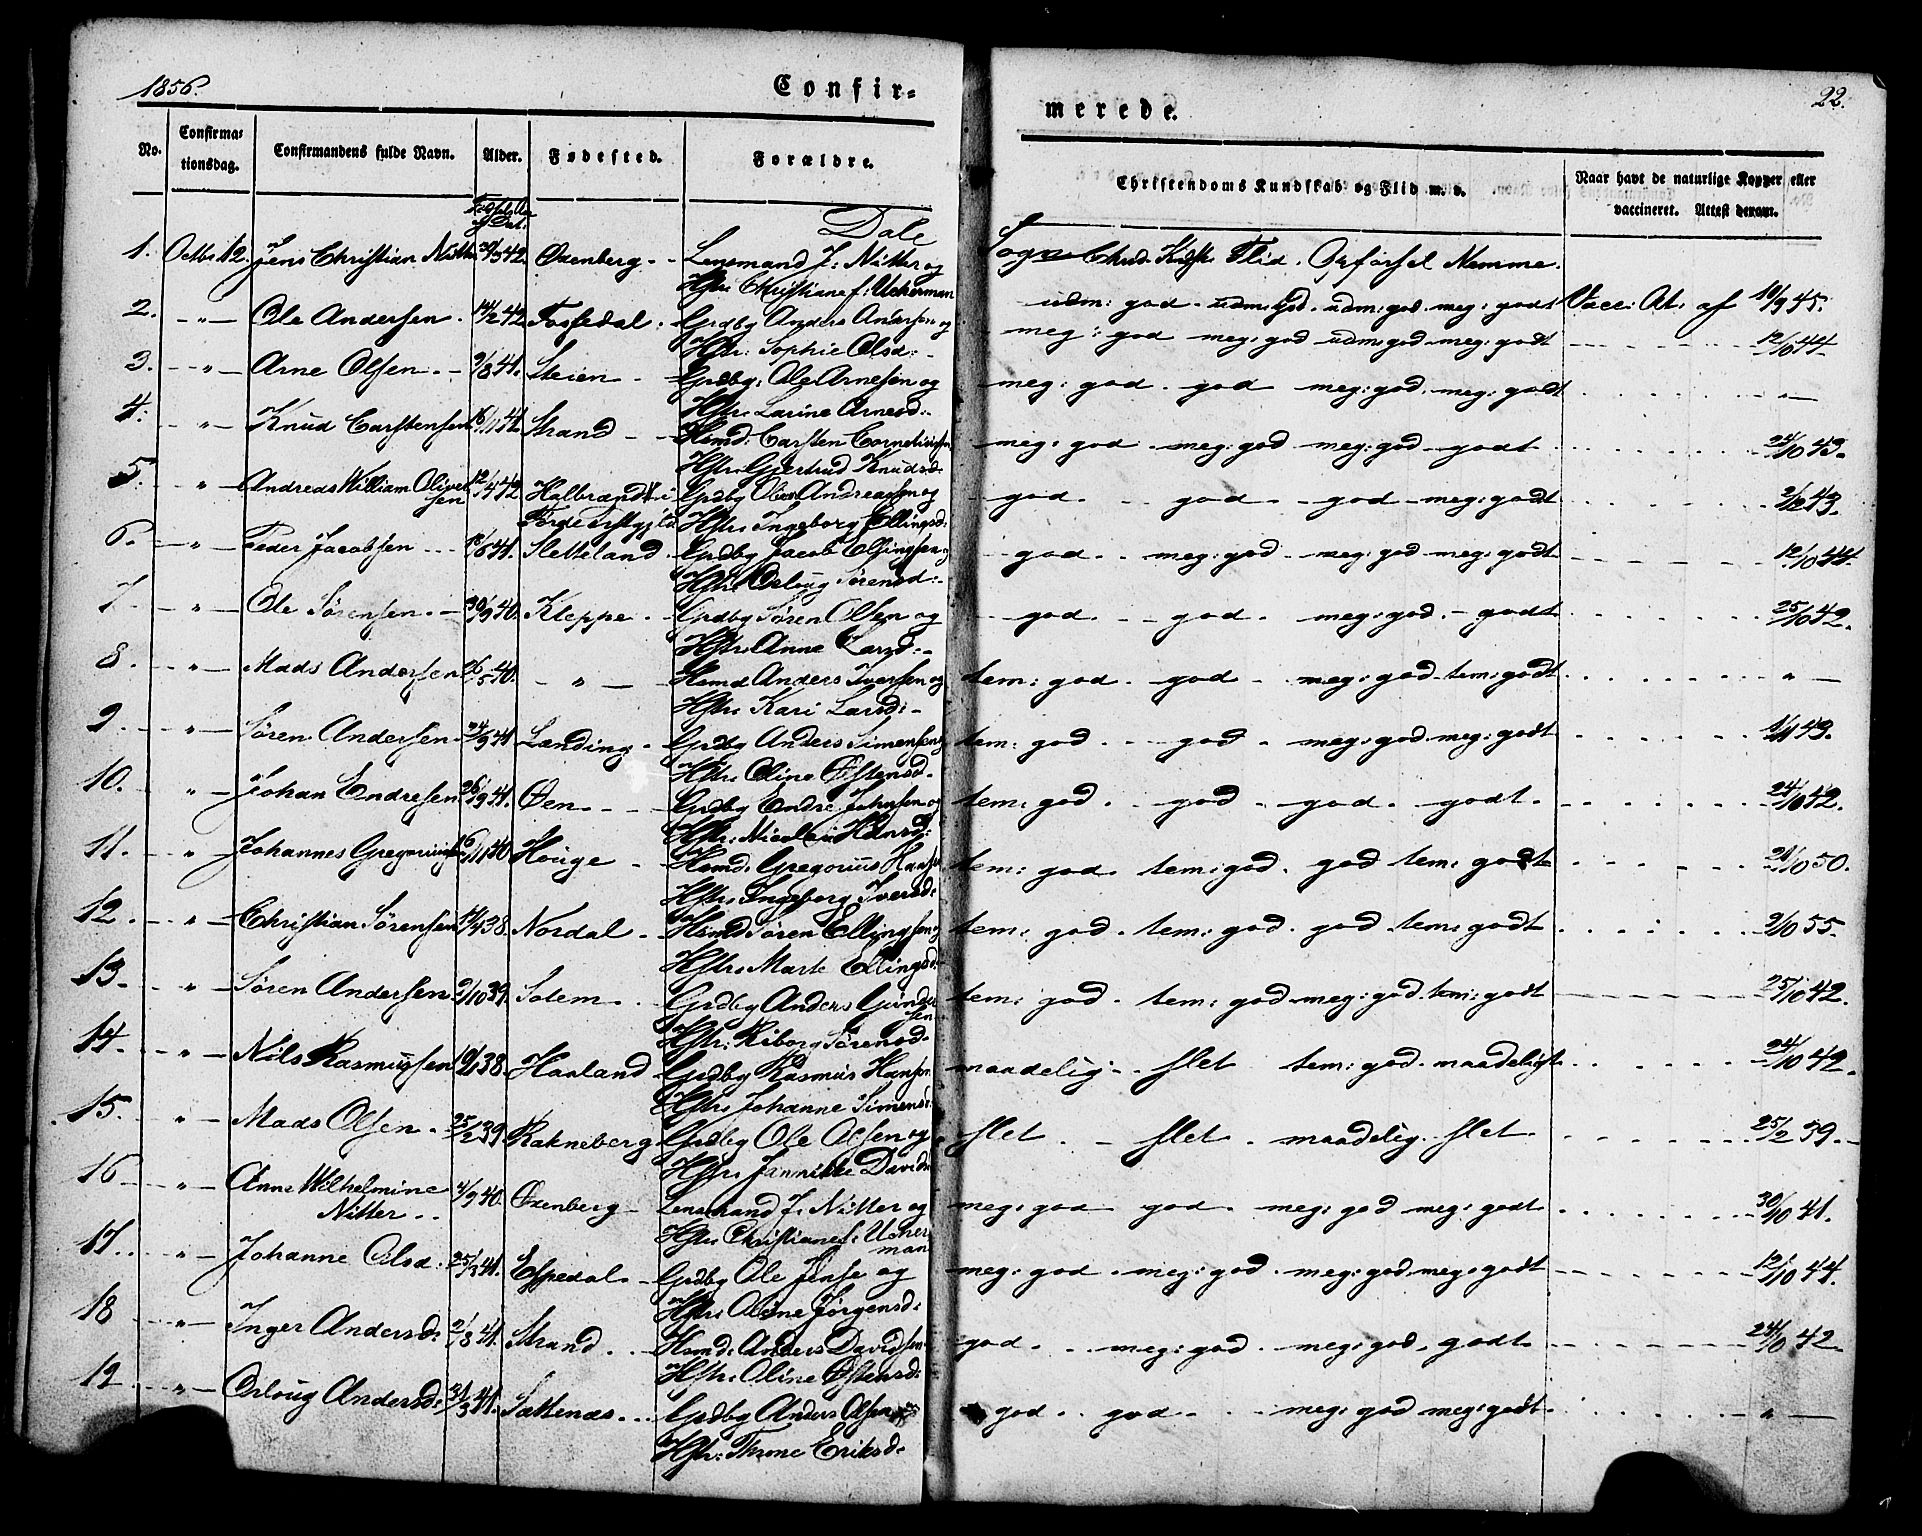 1856.
Confir-
merede.
22.
No.
Confirma-
tionsdag.
Confirmandens fulde Navn.
Alder.
Fødested.
Forældre.
Christendoms Kundskab og Flid m. v.
Naar havt de naturlige Kopper eller
vaccineret. Attest derom.
Dale
Sogn
Chrd. Kdsk. Flid. Opførsel Nemme.
1. Octbr. 12. Jens Christian Nitter 30/5 42. Oxenberg - - Lensmand J: Nitter og
Hstr: Christiane f: Ucherman
udm: god - udm: god. udm: god. meg: godt Vacc: At: af 10/9 45.
2. - " - Ole Andersen. 14/2 42 Fossedal. Grdbg Anders Andersen og
Hstr: Sophie Olsd: -
meg: god meg: god udm: god meg: godt 12/10 44
3. - " - Arne Olsen. - 9/8 41. Steien - Grdbg: Ole Arnesen og
Hstr: Larine Arnesd: -
meg: god. god meg: god. meg: godt " -
4. - " - Knud Carstensen 16/11 41. Strand - - Hsmd: Carsten Corneliussen
Hstr: Gjertrud Knudsd:
meg: god meg: god meg: god - godt 24/10 43.
5. " - Andreas William Oliver
sen 12/4 42 Halbrændsli Grdbg Ole Andreassen og
Førde Prstgjld Hstr: Ingeborg Ellingsd:
god. - god. - god - meg: godt 2/12 43.
6. - " - Peder Jacobsen - - 18/6 41. Sletteland. Grdbg Jacob Ellingsen og
Hstr: Osloug Sørensd: -
god. - meg: god - meg: god meg: godt 12/10 44.
7. - " - Ole Sørensen. - 30/9 40. Kleppe. - Grdbg Søren Olsen og
Hstr: Anne Larsd: -
god. - god. meg: god. - godt 25/10 42.
8. - " - Mads Andersen 26/5 40. - " - Hsmd Anders Iversen og
Hstr: Kari Larsd: -
tem: god. god - meg: god - tem: godt " -
9. - " - Søren Andersen. 24/9 41 Lænding. Grdbg Anders Simensen og
Hstr: Oline Østensd. -
tem: god. - god. meg: god. meg: godt 1/11 43.
10. " - Johan Endresen. 26/9 41. Øen - - - Grdbg Endre Johnsen og
Hstr: Nicolai Hansd:
tem: god. - god - god. - godt. 24/10 42.
11. - " - Johannes Gregoriussen 16/11 40. Houge - Hsmd: Gregorius Hansen
Hstr: Ingeborg Iversd:
tem: god. tem: god. god tem: godt 21/10 50.
12. - " - Christian Sørensen 14/4 38. Nordal - Hsmd Søren Ellingsen og
Hstr: Marte Ellingsd.
tem: god. tem: god. god tem: godt 2/10 55.
13. " - Søren Andersen 2/10 39. Solem. Grdbg Anders Gunder
sen
Hstr: Riborg Sørensd. -
tem: god. tem: god. meg: god. tem: godt 25/10 42.
14. - " - Nils Rasmussen 38. Haaland Grdbg Rasmus Hansen
Hstr: Johanne Simensd:
maadelig - . slet tem: god. maadeligt 24/10 42.
15. " - Mads Olsen. 25/2 39. Rakneberg Grdbg Ole Olsen og
Hstr: Jannikke Davidsd.
slet. - slet. maadelig. slet. 25/2 39. -
16 - " - Anne Wilhelmine
Nitter - . 4/9 40. Oxenberg - Lensmand J: Nitter og
Hstr: Christiane f: Ucher
man
meg: god god. meg: god meg: godt 30/10 41.
17. " - Johanne Olsd: 25/3 41. Espedal. - Grdbg Ole Jense og
Hstr: Oline Jørgensd:
meg: god. meg: god. meg: god. meg: godt 12/10 44.
18 - " - Inger Andersd: 2/8 41. Strand. Hsmd: Anders Davidsen
Hstr: Oline Østensd:
god. meg: god. meg: god. godt. 24/10 42.
19 - " - Osloug Andersd: 31/3 41. Sættenæs. . . Grdbg Anders Olsen
Hstr: Thrine Eriksd:
god. . god. - . meg: god meg: godt. " -